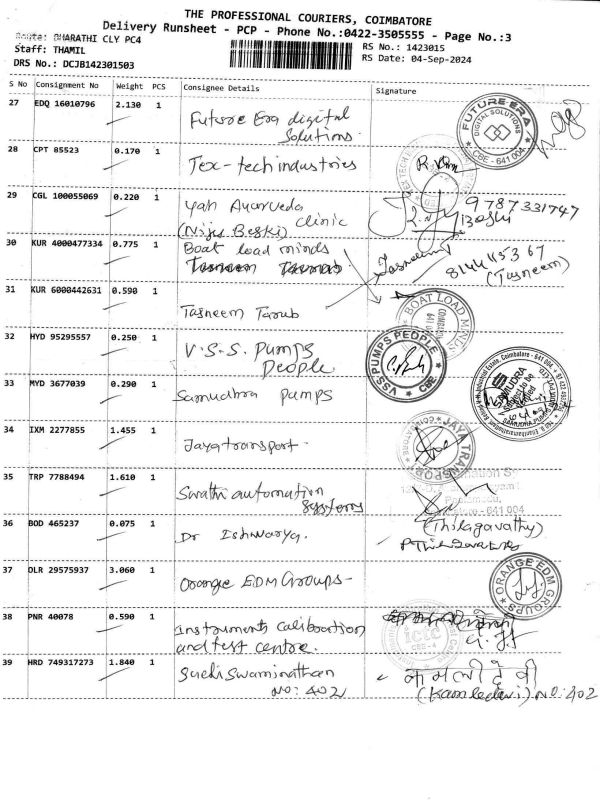 THE PROFESSIONAL COURIERS, COIMBATORE
Delivery Runsheet - PCP - Phone No.:0422-3505555 - Page No.:3
Route: BHARATHI CLY PC4
RS No.: 1423015
Staff: THAMIL
RS Date: 04-Sep-2024
DRS No.: DCJB142301503
S No Consignment No Weight PCS Consignee Details Signature
27 EDQ 16010796 2.130 1 Future Era digital
Solutions.
FUTURE-ERA
DIGITAL SOLUTIONS
CBE - 641 004
28 CPT 85523 0.170 1 Tex-tech industries
29 CGL 100055069 0.220 1 Yah Ayurveda
Clinic
9787331747
30 KUR 4000477334 0.775 1 Boat load minds
Tasneem
8144445367
(Tasneem)
31 KUR 6000442631 0.590 1
Tasneem Tarub
BOAT LOAD MINDS
32 HYD 95295557 0.250 1 V.S.S. Pumps
People
VSS PUMPS PEOPLE
CBE
33 MYD 3677039 0.290 1 Samudhra Pumps
SAMUDRA
34 IXM 2277855 1.455 1 Jaya transport.
JAYA TRANSPORT
35 TRP 7788494 1.610 1 Swathi automation
Systems
641 004
(Thilagavathy)
36 BOD 465237 0.075 1 Dr Ishwarya.
37 DLR 29575937 3.060 1 Orange EDM Groups-
ORANGE EDM GROUPS
38 PNR 40078 0.590 1 Instruments calibration
and test centre.
ictc
39 HRD 749317273 1.840 1 Suchi Swaminathan
NO: 402
(Kamledevi) No: 402